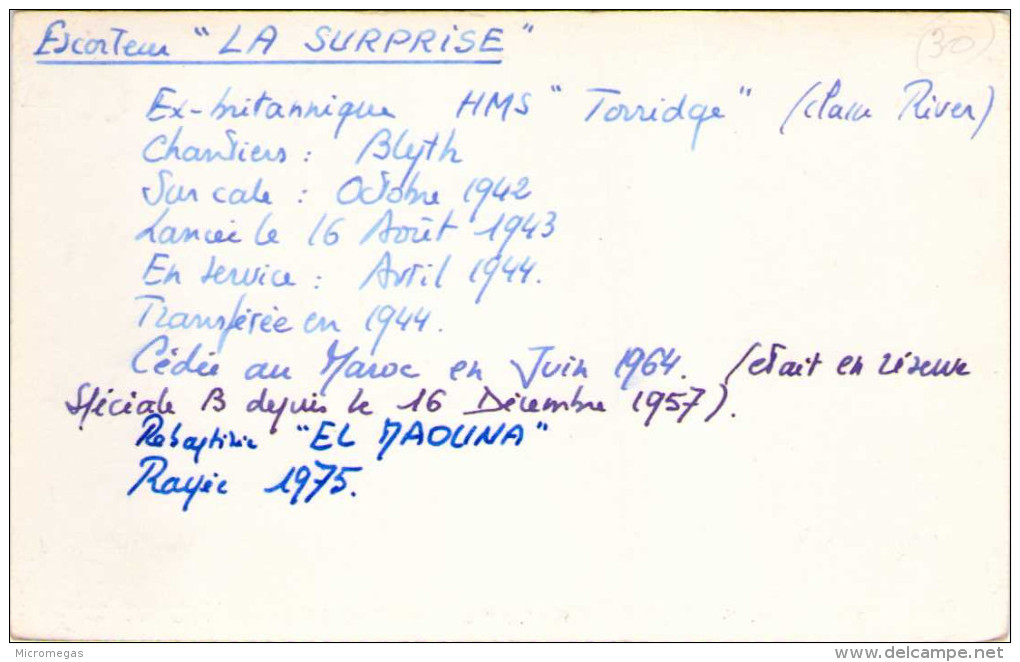 Escorteur "LA SURPRISE"
(30)
Ex-britannique HMS "Torridge" (classe River)
Chantiers : Blyth
Sur cale : Octobre 1942
Lancée le 16 Août 1943
En service : Avril 1944.
Transférée en 1944.
Cédée au Maroc en Juin 1964. (était en réserve
spéciale B depuis le 16 Décembre 1957).
Rebaptisée "EL MAOUNA"
Rayée 1975.
Micromegas
www.delcampe.net